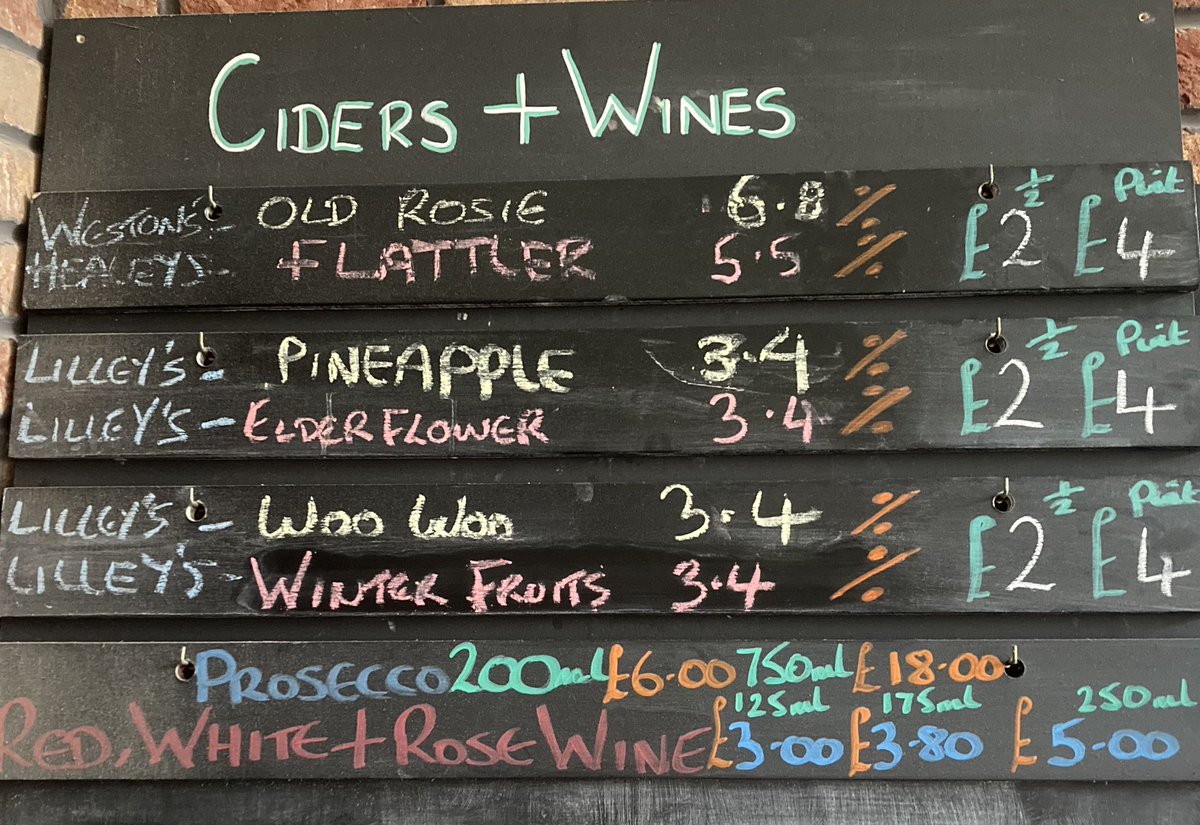 CIDERS + WINES
WESTONS - OLD ROSIE 6.8 % ½ £2 Pint £4
HEALEYS - FLATTLER 5.5 %
LILLEY'S - PINEAPPLE 3.4 % ½ £2 Pint £4
LILLEY'S - ELDERFLOWER 3.4 %
LILLEY'S - WOO WOO 3.4 % ½ £2 Pint £4
LILLEY'S - WINTER FRUITS 3.4 %
PROSECCO 200ml £6.00 750ml £18.00
125ml 175ml 250ml
RED, WHITE + ROSE WINE £3.00 £3.80 £5.00